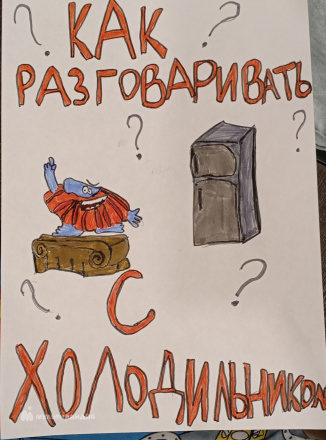 КАК
РАЗГОВАРИВАТЬ
С
ХОЛОДИЛЬНИКОМ